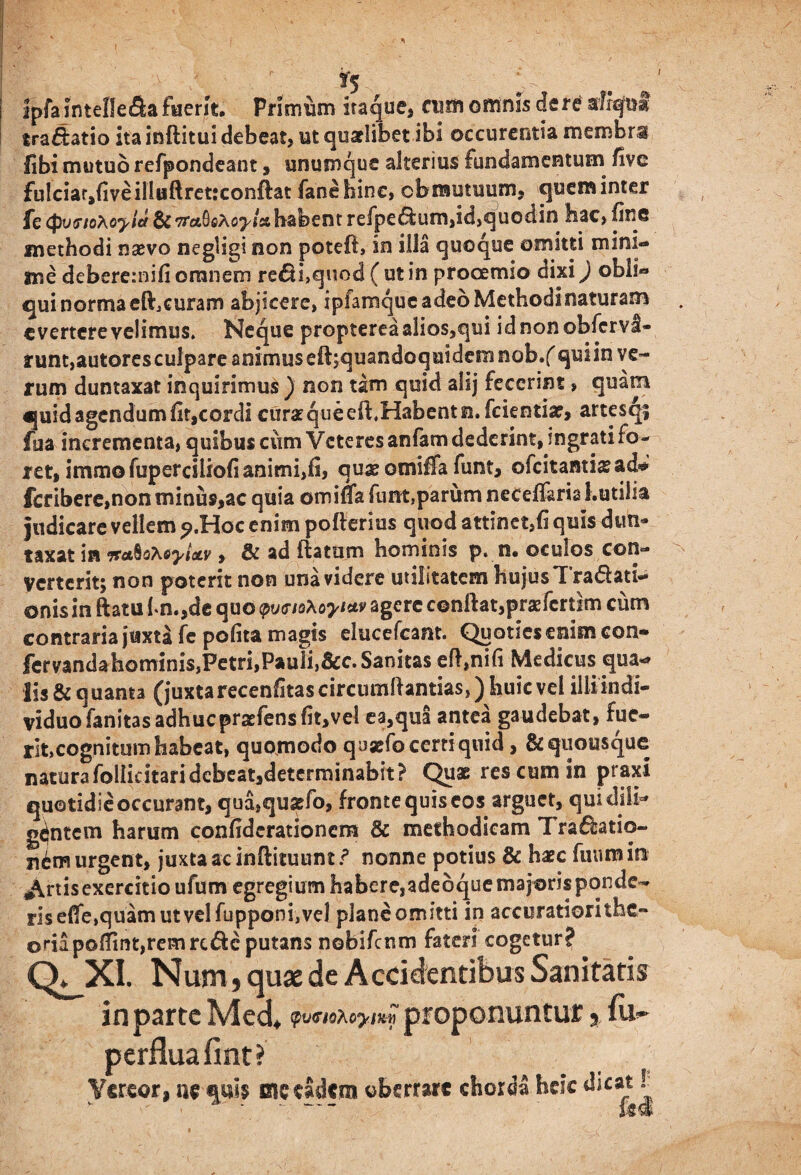 15
ipſa intellecta fuerit. Primùm itaque, cum omnis de re aliquâ
tractatio ita inſtitui debeat, ut quælibet ibi occurentia membra
ſibi mutuò reſpondeant, unumque alterius fundamentum ſive
fulciat, ſivè illuſtret: conſtat ſanè hinc, ob mutuum, quem inter
ſe φυσιολογία & παθολογία habent reſpectum, id, quod in hac, ſine
methodi nævo negligi non poteſt, in illâ quoque omitti mini-
mè debere: niſi omnem recti, quod (ut in proœmio dixi) obli-
qui norma eſt, curam abjicere, ipſamque adeò Methodi naturam
evertere velimus. Neque propterea alios, qui id non obſervâ-
runt, autores culpare animus eſt; quandoquidem nob. (qui in ve-
rum duntaxat inquirimus) non tàm quid alij fecerint, quàm
quid agendum ſit, cordi curæquè eſt. Habent n. ſcientiæ, artesq;
ſua incrementa, quibus cùm Veteres anſam dederint, ingrati fo-
ret, immo ſupercilioſi animi, ſi, quæ omiſſa ſunt, oſcitantiæ ad-
ſcribere, non minùs, ac quia omiſſa ſunt, parùm neceſſaria l. utilia
judicare vellem 9. Hoc enim poſterius quod attinet, ſi quis dun-
taxat in παθολογίαν, & ad ſtatum hominis p. n. oculos con-
verterit; non poterit non unà videre utilitatem hujus Tractati-
onis in ſtatu ſ. n., de quo φυσιολογίαν agere conſtat, præſertim cùm
contraria juxtà ſe poſita magis eluceſcant. Quoties enim con-
ſervanda hominis, Petri, Pauli, &c. Sanitas eſt, niſi Medicus qua-
lis & quanta (juxta recenſitas circumſtantias,) huic vel illi indi-
viduo ſanitas adhuc præſens ſit, vel ea, quâ anteà gaudebat, fue-
rit, cognitum habeat, quomodo quæſo certi quid, & quousque
natura follicitari debeat, determinabit? Quæ res cum in praxi
quotidiè occurant, quâ, quæſo, fronte quis eos arguet, qui dili-
gentem harum conſiderationem & methodicam Tractatio-
nem urgent, juxta ac inſtituunt? nonne potius & hæc ſuum in
Artis exercitio uſum egregium habere, adeòque majoris ponde-
ris eſſe, quàm ut vel ſupponi, vel planè omitti in accuratiori the-
oriâ poſſint, rem rectè putans nobiſcum fateri cogetur?
Q. XI. Num, quæ de Accidentibus Sanitatis
in parte Med. φυσιολογικῇ proponuntur, ſu-
perflua ſint?
Vereor, ne quis me eâdem oberrare chordâ heic dicat!
ſed